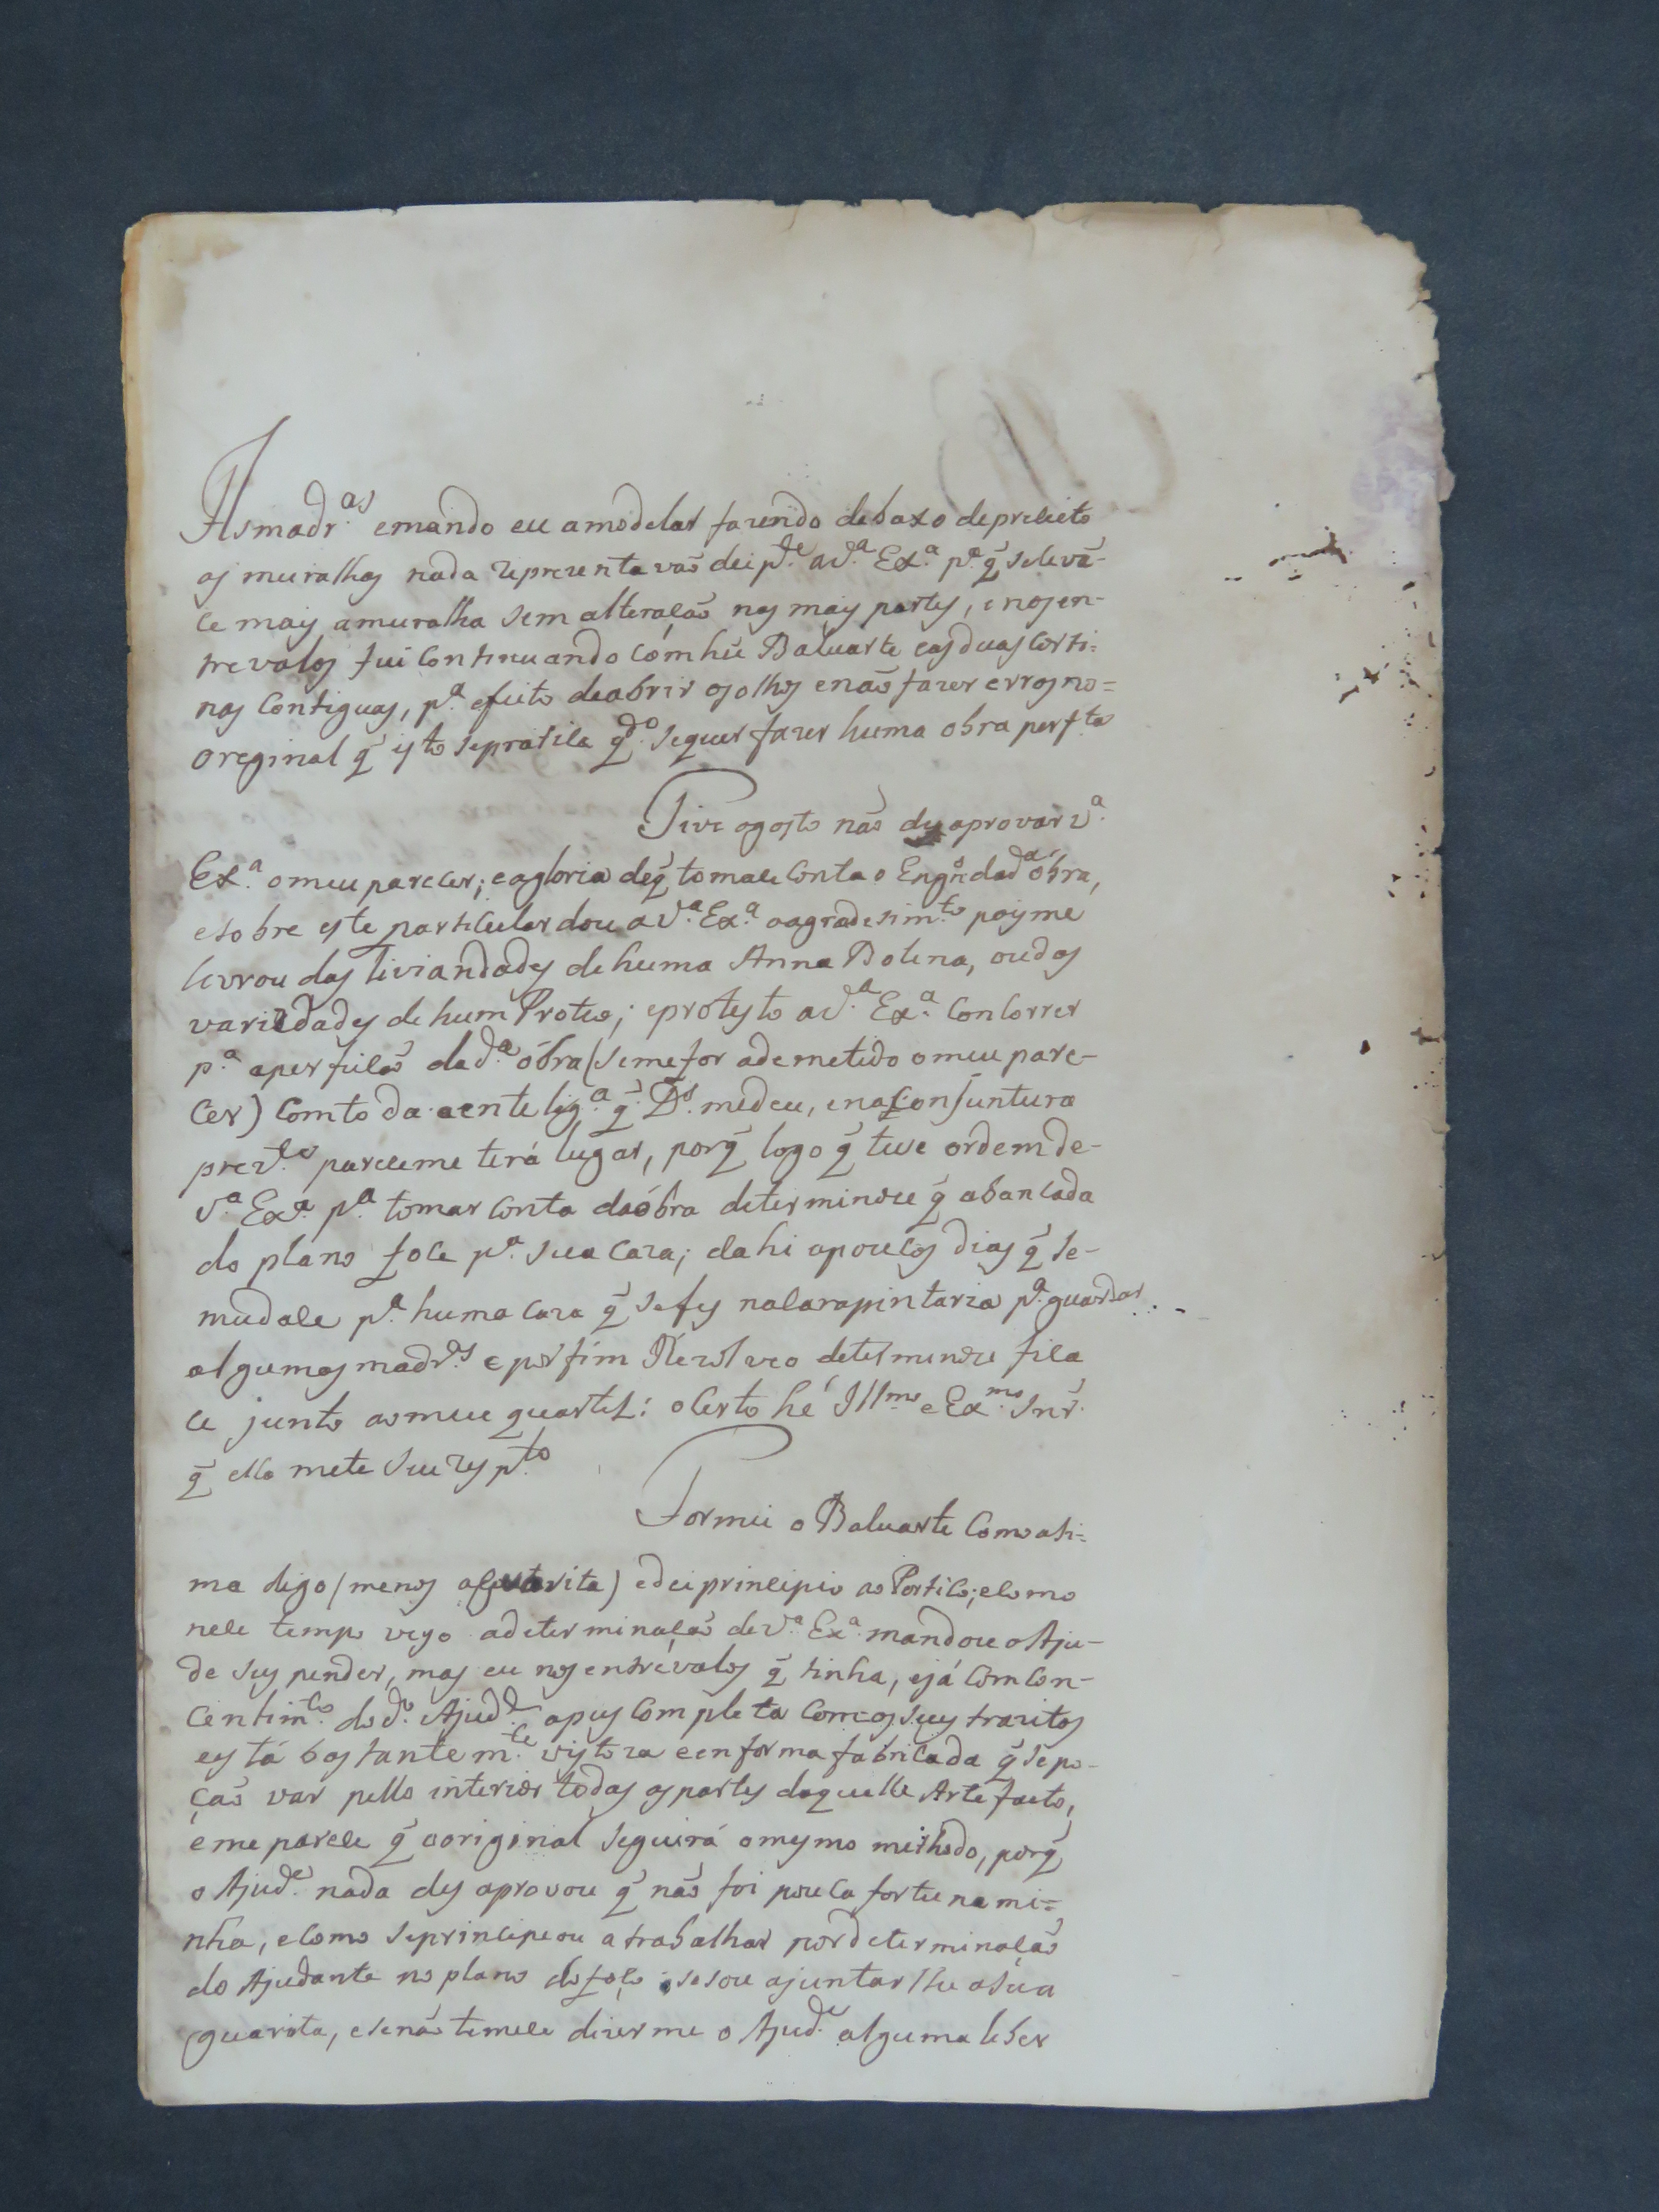 As madr.as e mando eu amodelar fazendo debaxo de preceito
as muralhas nada reprezentavaõ dei p.te a V.ª Ex.ª p.ª q̃ se levã-
ce mais amuralha sem alteraçaõ nas mais partes, e nos en-
trevalos fui continuando com hũ Baluarte e as duas corti-
nas contiguas, p.ª efeito de abrir os olhos e naõ fazer erros no=
oreginal q̃ isto se pratica q.do se quer fazer huma obra perf.ta
Tive o gosto naõ desaprovar V.ª
Ex.ª o meu parecer; e a gloria de q̃ tomace conta o Engr.º da d.ª óbra,
e sobre este particular dou a V.ª Ex.ª o agradesim.to pois me
livrou das liviandades de huma Anna Bolena, ou das
variedades de hum Proteo; e protesto a V.ª Ex.ª concorrer
p.ª aperfeiçaõ da d.ª óbra (se me for ademetido o meu pare-
cer) com toda a entelig.ª q̃ D.s me deu, e na conjuntura
prez.te pareceme terá lugar, porq̃ logo q̃ tive ordem de-
V.ª Ex.ª p.ª tomar conta da óbra determinou q̃ a bancada
do plano foce p.ª sua caza; e dahi a poucos dias q̃ se-
mudace p.ª huma caza q̃ se fes na carapintaria p.ª guardar
algumas madr.as e por fim Rezolveo determinou fica
ce junto ao meu quartel: o certo hé Ill.mo e Ex.mo Snr̃.
q̃ ella mete seu resp.to
Formei o Baluarte como asi=
ma digo (menos a guarita) e dei principio ao Portico; e como
nece tempo veyo a determinaçaõ de V.ª Ex.ª mandou o Aju-
de suspender, mas eu nos entrévalos q̃ tinha, e já com con-
centim.to do d.º Ajud.e a pus completa com os seus tranzitos
está bastantem.te vistoza e en forma fabricada q̃ se po-
çaõ var pello interior todas as partes daquelle Artefacto,
e me parece q̃ o original seguirá o mesmo methodo, porq̃
o Ajud.e nada desaprovou q̃ naõ foi pouca fortuna mi=
nha, e como se principeou a trabalhar por determinaçaõ
do Ajudante no plano do foço so sou ajuntarlhe a sua
guarita, e se naõ temece dizerme o Ajud.e alguma liber